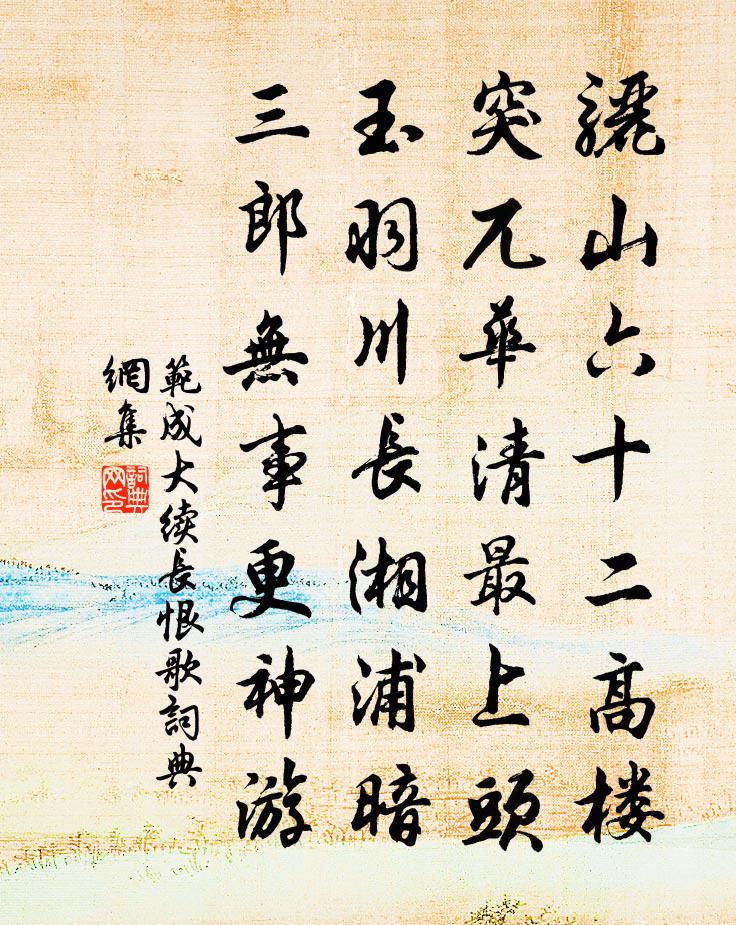 驪山六十二高楼
突兀華清最上頭
玉羽川長湘浦暗
三郎無事更神游
範成大续長恨歌詞典
網集
詞典
网印